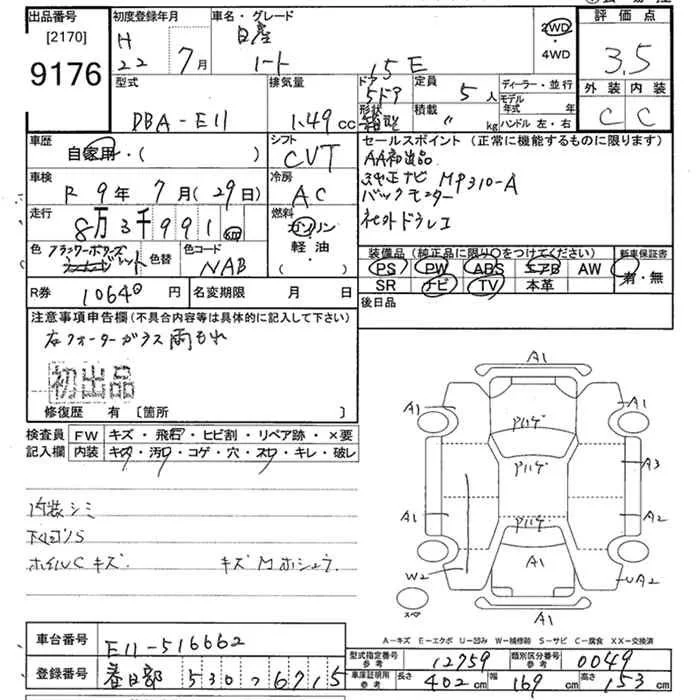 出品番号
[2170]
9176
初度登録年月
H
22 7月
車名・グレード
日産
ノート 15E
2WD
・
4WD
評価点
3.5
外装 内装
C C
型式
DBA-E11
排気量
1.49 cc
ドア
5ドア
形状
定員
5人
積載
〃 kg
ディーラー・並行
モデル
年式 年
ハンドル 左・右
車歴
自家用・( )
シフト
CVT
セールスポイント (正常に機能するものに限ります)
AA初出品
純正ナビ MP310-A
バックモニター
社外ドラレコ
車検
R 9年 7月(29日)
冷房
AC
走行
8万3千991km
燃料
ガソリン
軽・油
( )
色
色替
色コード
NAB
装備品 (純正品に限り〇をつけてください)
PS PW ABS エアB AW
SR ナビ TV 本革
新車保証書
有・無
R券 10640円
名変期限 月 日
後日品
注意事項申告欄 (不具合内容等は具体的に記入して下さい)
右クォーターガラス雨もれ
初出品
修復歴 有 〔箇所 〕
検査員
記入欄
FW キズ・飛石・ヒビ割・リペア跡・×要
内装 キズ・汚れ・コゲ・穴・スレ・キレ・破レ
内装シミ
ホイルCキズ キズMホシュウ
A1
A1
A1
A3
A1
A2
A1
W2
UA2
A1
スペア
A-キズ E-エクボ U-凹み W-補修跡 S-サビ C-腐食 XX-交換済
車台番号 E11-516662
登録番号 春日部 530 つ 6715
型式指定番号
参考
12759
類別区分番号
参考
0049
車庫証明用
参考
長さ 402 cm 幅 169 cm 高さ 153 cm